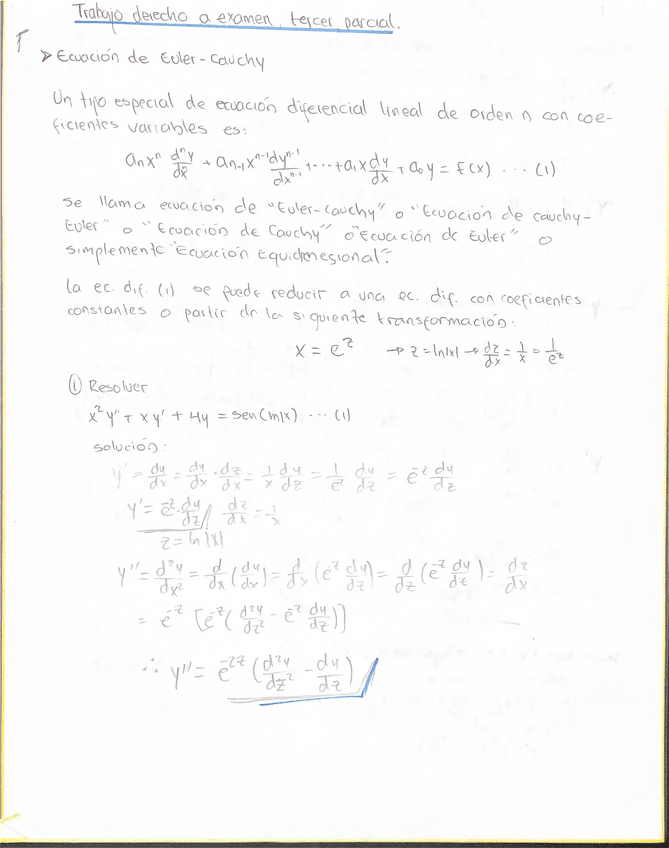 Trabajo derecho a examen, tercer parcial.
➤ Ecuación de Euler-Cauchy
Un tipo especial de ecuación diferencial lineal de orden n con coe-
ficientes variables es:
aₙxⁿ dⁿy/dx + aₙ₋₁xⁿ⁻¹ dyⁿ⁻¹/dxⁿ⁻¹ + ... + a₁x dy/dx + a₀y = f(x) ... (1)
se llama ecuación de "Euler-Cauchy" o "Ecuación de Cauchy-
Euler" o "Ecuación de Cauchy" o "Ecuación de Euler" o
simplemente "Ecuación Equidimesional".
la ec. dif. (1) se puede reducir a una ec. dif. con coeficientes
constantes o partir de la siguiente transformación:
x = e^z → z = ln|x| → dz/dx = 1/x = 1/e^z
① Resolver
x²y'' + xy' + 4y = sen(ln|x) ... (1)
solución:
y' = dy/dx = dy/dx · dz/dx = 1/x dy/dz = 1/e^z dy/dz = e^-z dy/dz
y' = e^-z · dy/dz // dz/dx = 1/x
z = ln|x|
y'' = d²y/dx² = d/dx (dy/dx) = d/dx (e^-z dy/dz) = d/dz (e^-z dy/dz) = dz/dx
= e^-z [e^-z (d²y/dz² - e^-z dy/dz)]
∴ y'' = e^-2z (d²y/dz² - dy/dz)